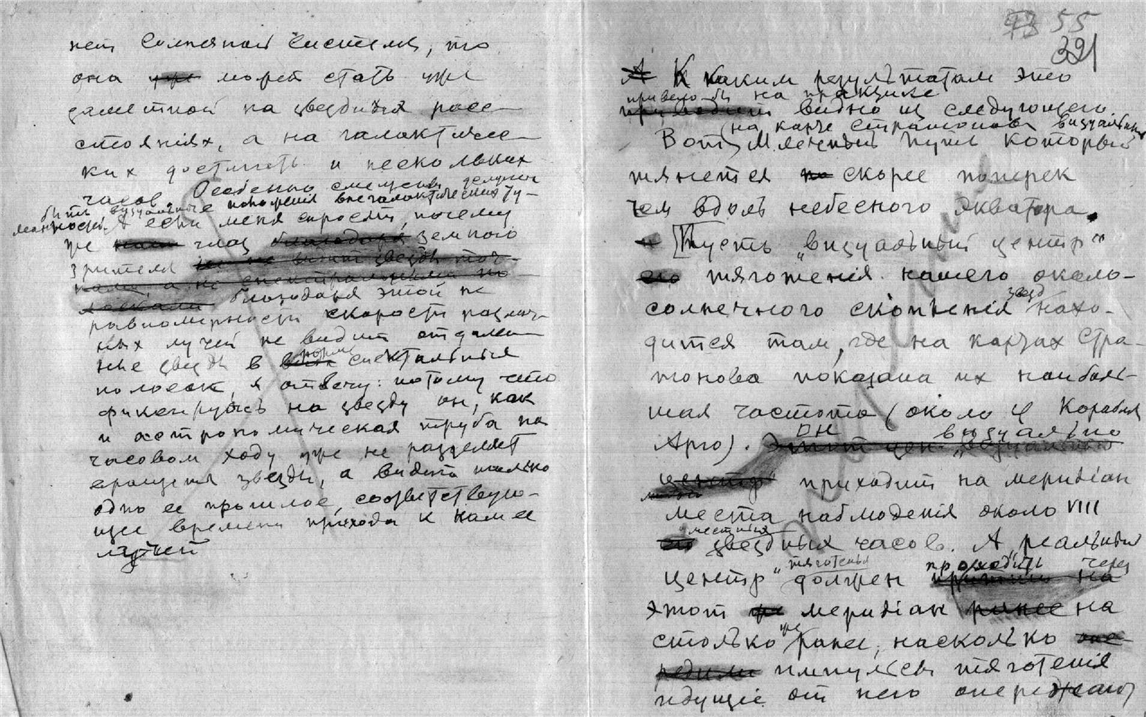 нет солнечной системы, то
она может стать уже
заметной на звездных рас-
стояниях, а на галактичес-
ких достигать и нескольких
часов. Особенно смещены должны
быть визуальные положения внегалактических ту-
манностей. А если меня спросят, почему
же глаз земного
зрителя
благодаря этой не
равномерности скорости различ-
ных лучей не видит отдален-
ные звезды в форме спектральных
полосок, я отвечу: потому что
фиксируясь на звезду он, как
и астрономическая труба на
часовом ходу уже не разделяет
звезды, а видит только
одно ее прошлое, соответствую-
щее времени прихода к нам ее
лучей
73 55
391
К каким результатам это
привело бы на практике
видно из следующего.
(на карте Стратонова визуальный
Вот Млечный путь который
тянется скорее поперек
чем вдоль небесного экватора.
[Пусть „визуальный центр"
тяготения нашего около-
солнечного скопления звезд нахо-
дится там, где на картах Стра-
тонова показана их наиболь-
шая частота (около φ Корабля
Арго). Он визуально
приходит на меридиан
места наблюдения около VIII
местных
звездных часов. А реальный
центр „тяготения проходить через
должен
этот меридиан на
столько же ранее, насколько
импульсы тяготения
идущие от него опережают